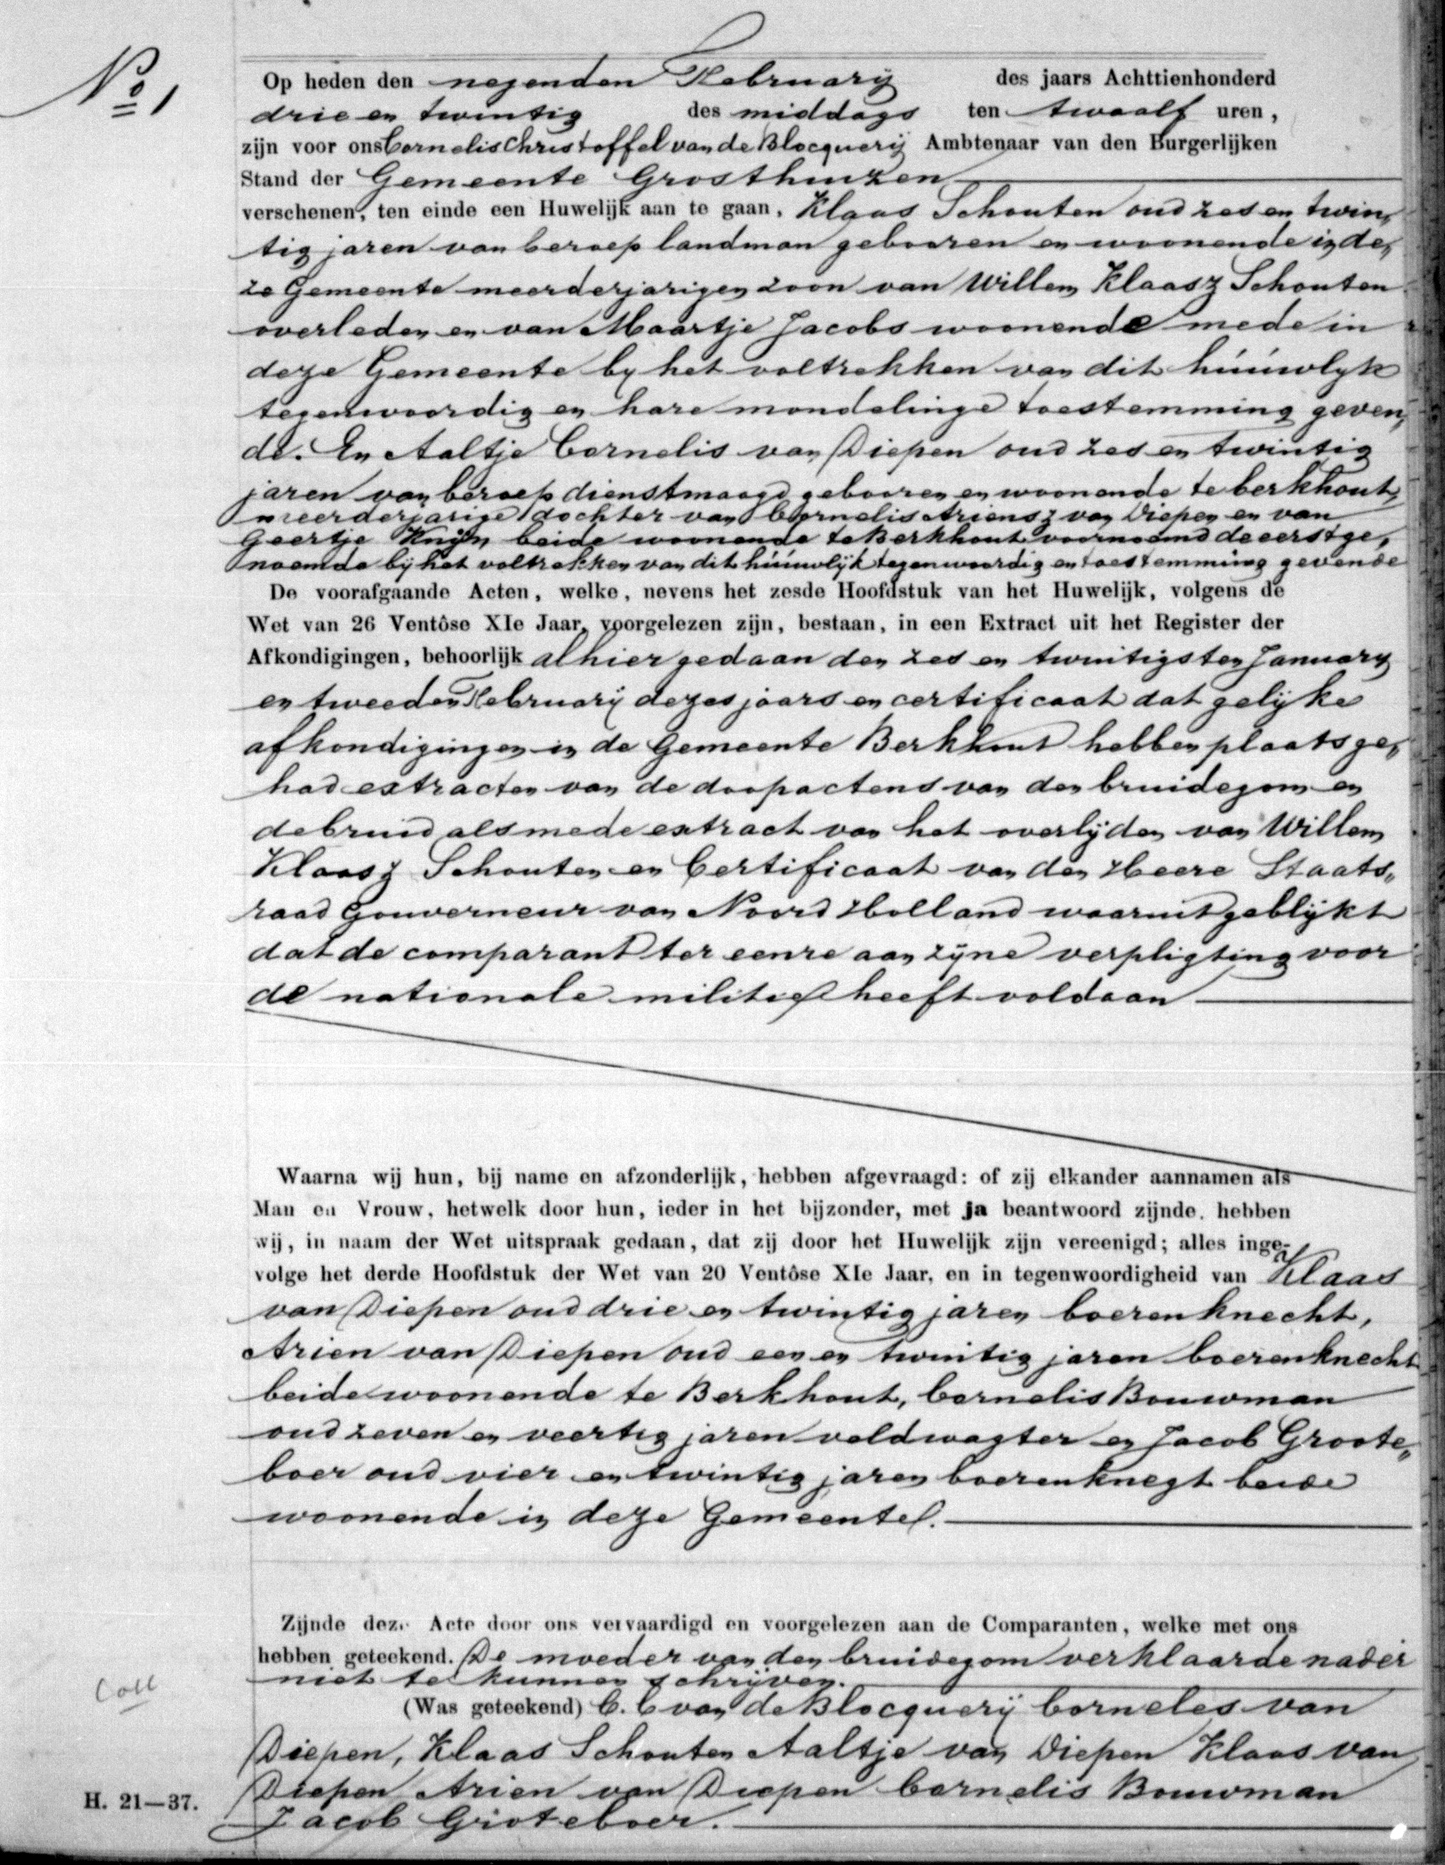 No 1
Op heden den negenden February des jaars Achttienhonderd
drie en twintig des middags ten twaalf uren,
zijn voor ons Cornelis Christoffel van de Blocquerij Ambtenaar van den Burgerlijken
Stand der Gemeente Grosthuizen
verschenen, ten einde een Huwelijk aan te gaan, Klaas Schouten oud zes en twin„
tig jaren van beroep landman gebooren en woonende in de„
ze Gemeente meerderjarigen zoon van Willem Klaasz Schouten
overleden en van Maartje Jacobs woonende mede in
deze Gemeente by het voltrekken van dit húúwlyk
tegenwoordig en hare mondelinge toestemming geven„
de. En Aaltje Cornelis van Diepen oud zes en twintig
jaren van beroep dienstmaagd gebooren en woonende te berkhout,
meerderjarige dochter van Cornelis Ariensz van Diepen en van
Geertje Knijn beide woonende te Berkhout voornoemd de eerstge„
noemde bij het voltrekken van dit húúwlijk tegenwoordig en toestemming gevende
De voorafgaande Acten, welke, nevens het zesde Hoofdstuk van het Huwelijk, volgens de
Wet van 26 Ventôse XIe Jaar, voorgelezen zijn, bestaan, in een Extract uit het Register der
Afkondigingen, behoorlijk alhier gedaan den zes en twintigsten January
en tweeden February dezes jaars en certificaat dat gelijke
afkondigingen in de Gemeente Berkhout hebben plaats ge„
had extracten van de doopactens van den bruidegom en
de bruid als mede extract van het overlijden van Willem
Klaasz Schouten en Certificaat van den Heere Staats„
raad Gouverneur van Noord Holland waaruit geblijkt
dat de comparant ter eenre aan zijne verpligting voor
de nationale militie heeft voldaan
Waarna wij hun, bij name en afzonderlijk, hebben afgevraagd: of zij elkander aannamen als
Man en Vrouw, hetwelk door hun, ieder in het bijzonder, met ja beantwoord zijnde, hebben
wij, in naam der Wet uitspraak gedaan, dat zij door het Huwelijk zijn vereenigd; alles inge-
volge het derde Hoofdstuk der Wet van 20 Ventôse XIe Jaar, en in tegenwoordigheid van Klaas
van Diepen oud drie en twintig jaren boerenknecht,
Arien van Diepen oud een en twintig jaren boerenknecht
beide woonende te Berkhout, Cornelis Bouwman
oud zeven en veertig jaren veldwagter en Jacob Groote„
boer oud vier en twintig jaren boerenknegt beide
woonende in deze Gemeente.
Zijnde deze Acte door ons vervaardigd en voorgelezen aan de Comparanten, welke met ons
hebben geteekend. De moeder van den bruidegom verklaarde nader
niet te kunnen schrijven.
Coll
(Was geteekend) C. C van de Blocquerij Corneles van
Diepen, Klaas Schouten Aaltje van Diepen Klaas van
Diepen Arien van Diepen Cornelis Bouwman
H. 21—37.
Jacob Groteboer.